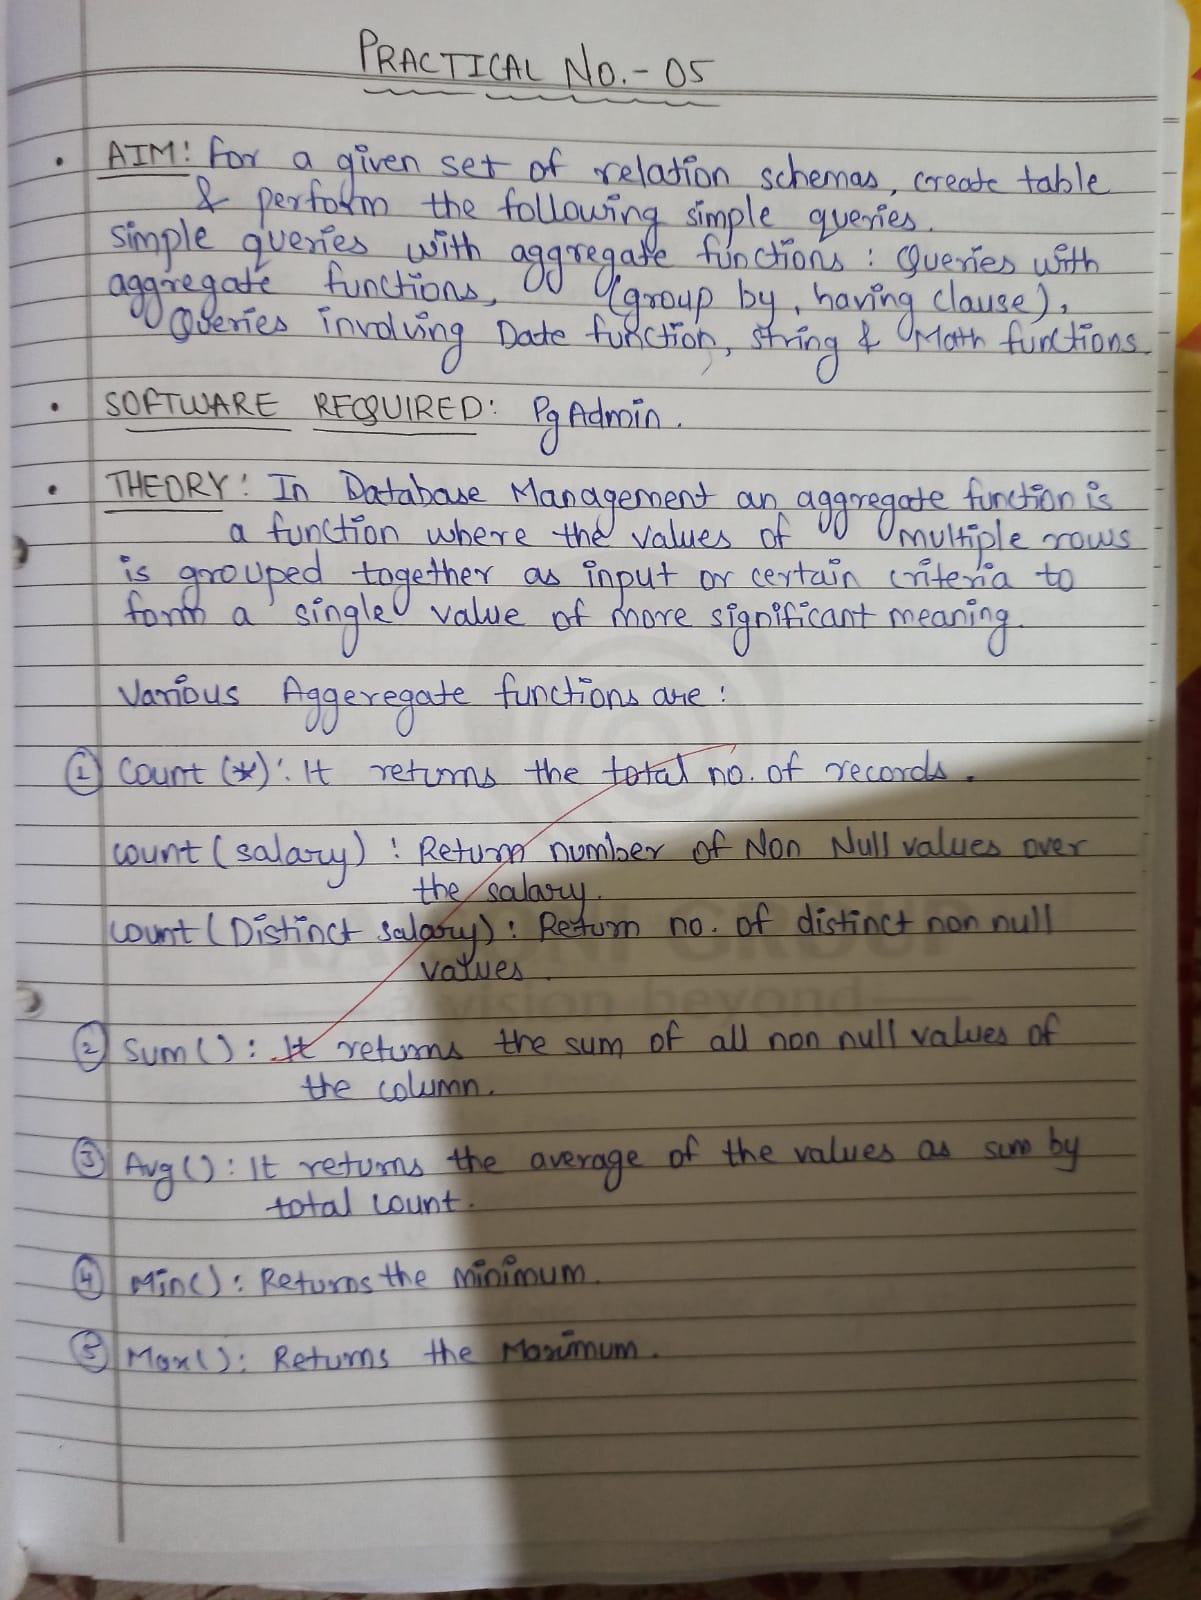 PRACTICAL NO.- 05
• AIM: For a given set of relation schemas, create table
& perform the following simple queries.
simple queries with aggregate functions : Queries with
aggregate functions, (group by, having clause),
Queries involving Date function, string & Math functions.
• SOFTWARE REQUIRED: PgAdmin.
• THEORY: In Database Management an aggregate function is
a function where the values of multiple rows
is grouped together as input or certain criteria to
form a single value of more significant meaning.
Various Aggeregate functions are :
① Count (*) : It returns the total no. of records.
count ( salary) : Return number of Non Null values over
the salary.
count ( Distinct salary) : Return no. of distinct non null
values.
② Sum () : It returns the sum of all non null values of
the column.
③ Avg () : It returns the average of the values as sum by
total count.
④ Min() : Returns the minimum.
⑤ Max() : Returns the Maximum.
GROUP
a vision beyond